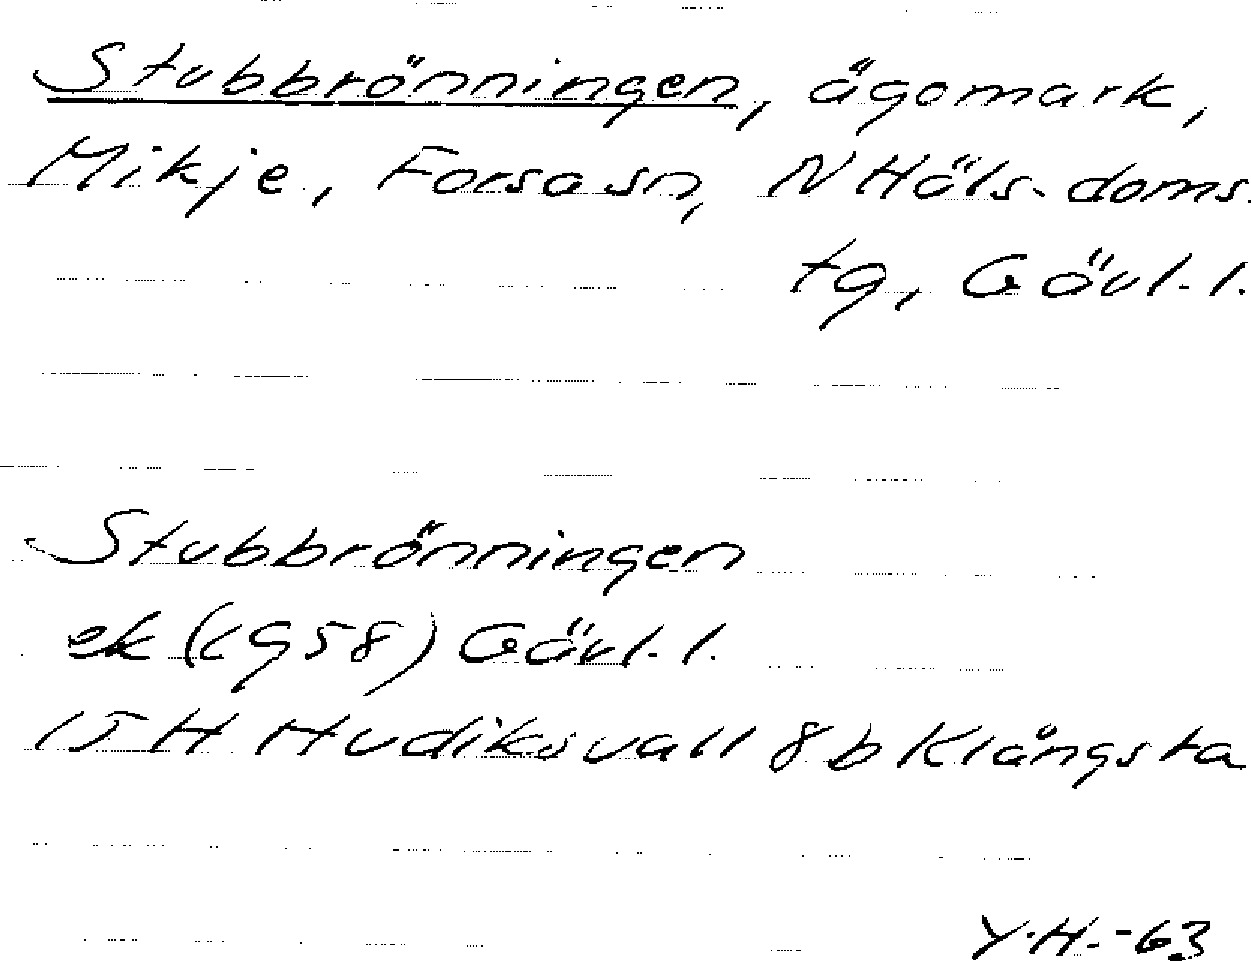 Stubbrönningen, ägomark,
Mikje, Forsasn, N Häls. doms.
tg, Gävl. l.
Stubbrönningen
ek (c 958) Gävl. l.
15 H Hudiksvall 8 b Klångsta
Y.H.-63